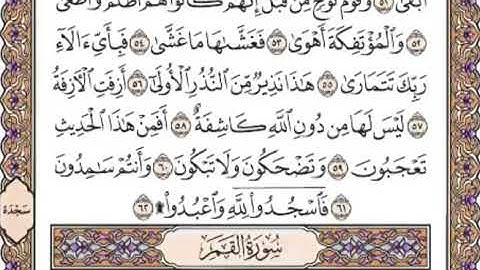 أَبْقَىٰ ٥١ وَقَوْمَ نُوحٍ مِّن قَبْلُ إِنَّهُمْ كَانُوا۟ هُمْ أَظْلَمَ وَأَطْغَىٰ
٥٢ وَٱلْمُؤْتَفِكَةَ أَهْوَىٰ ٥٣ فَغَشَّىٰهَا مَا غَشَّىٰ ٥٤ فَبِأَىِّ ءَالَآءِ
رَبِّكَ تَتَمَارَىٰ ٥٥ هَٰذَا نَذِيرٌ مِّنَ ٱلنُّذُرِ ٱلْأُولَىٰٓ ٥٦ أَزِفَتِ ٱلْءَازِفَةُ
٥٧ لَيْسَ لَهَا مِن دُونِ ٱللَّهِ كَاشِفَةٌ ٥٨ أَفَمِنْ هَٰذَا ٱلْحَدِيثِ
تَعْجَبُونَ ٥٩ وَتَضْحَكُونَ وَلَا تَبْكُونَ ٦٠ وَأَنتُمْ سَٰمِدُونَ
٦١ فَٱسْجُدُوا۟ لِلَّهِ وَٱعْبُدُوا۟ ۩ ٦٢
سَجْدَة
سُورَةُ ٱلْقَمَرِ